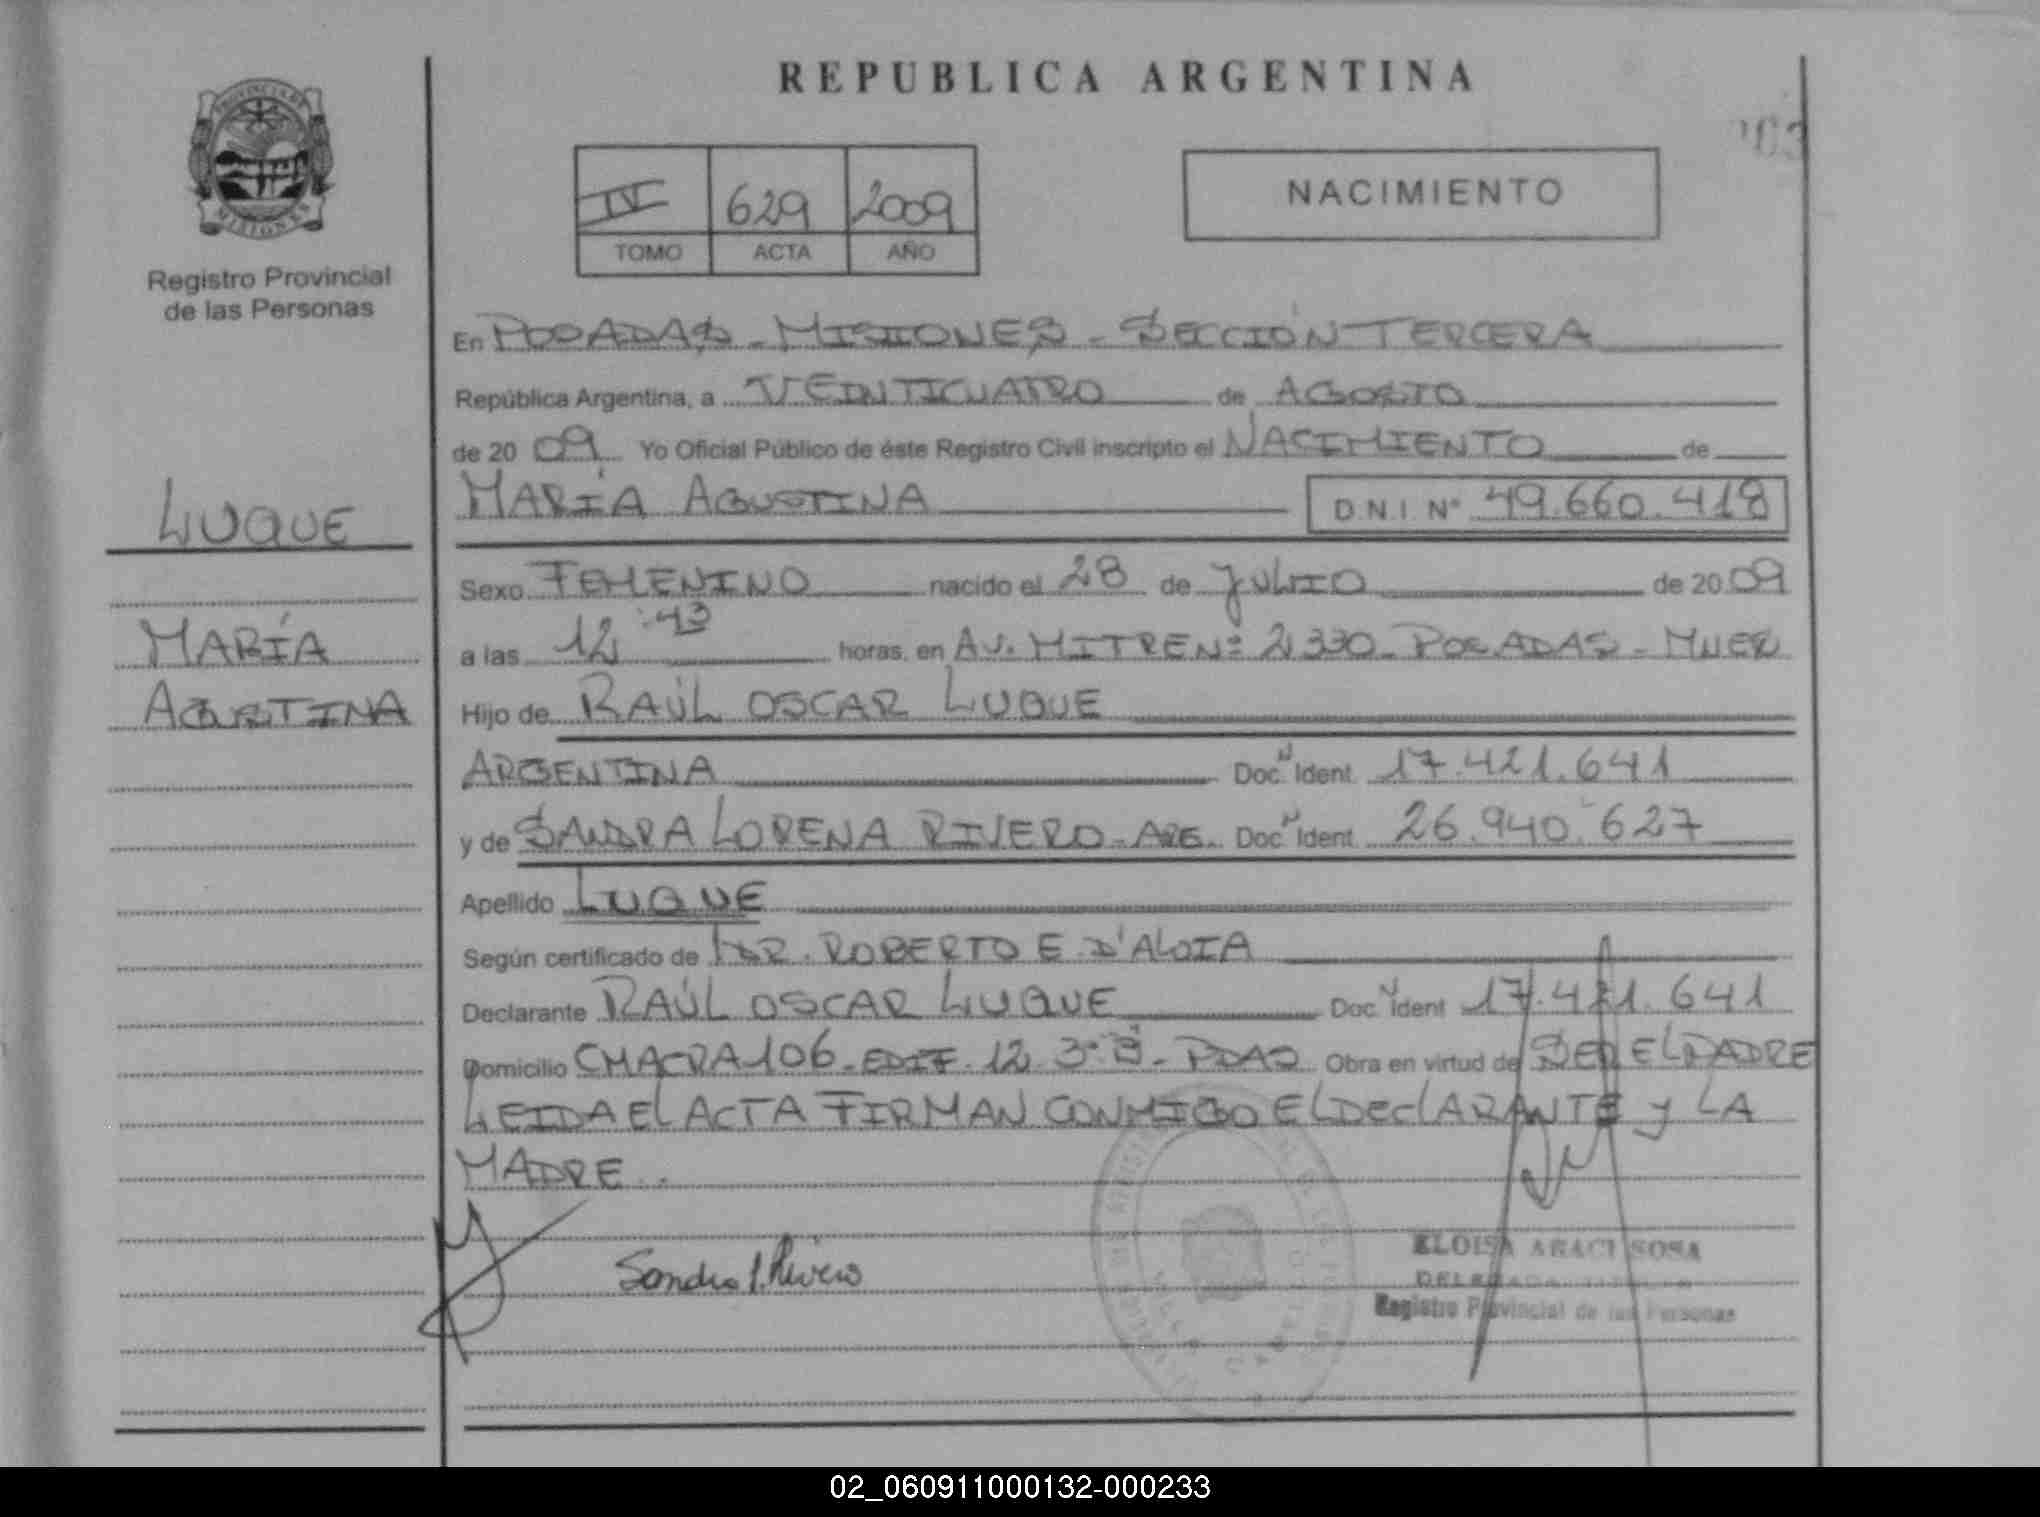 REPUBLICA ARGENTINA
PROVINCIA DE
MISIONES
Registro Provincial
de las Personas
IV 629 2009
TOMO ACTA AÑO
NACIMIENTO
En POSADAS - MISIONES - SECCIÓN TERCERA
República Argentina, a VEINTICUATRO de AGOSTO
de 20 09 Yo Oficial Público de éste Registro Civil inscripto el NACIMIENTO de
MARÍA AGUSTINA D.N.I. N° 49.660.418
LUQUE
MARÍA
AGUSTINA
Sexo FEMENINO nacido el 28 de JULIO de 20 09
a las 12:43 horas, en AV. MITRE Nº 2330 - POSADAS - MNES
Hijo de RAÚL OSCAR LUQUE
ARGENTINA Doc. Ident 17.421.641
y de SANDRA LORENA RIVERO - ARG. Doc. Ident 26.940.627
Apellido LUQUE
Según certificado de DR. ROBERTO E. D'ALOIA
Declarante RAÚL OSCAR LUQUE Doc. Ident 17.421.641
Domicilio CHACRA 106 - EDIF. 12 3º B - PDAS Obra en virtud de SER EL PADRE
LEIDA EL ACTA FIRMAN CONMIGO EL DECLARANTE Y LA
MADRE.
Sandra L. Rivero
ELOISA ARACI SOSA
DELEGADA
Registro Provincial de las Personas
02_060911000132-000233